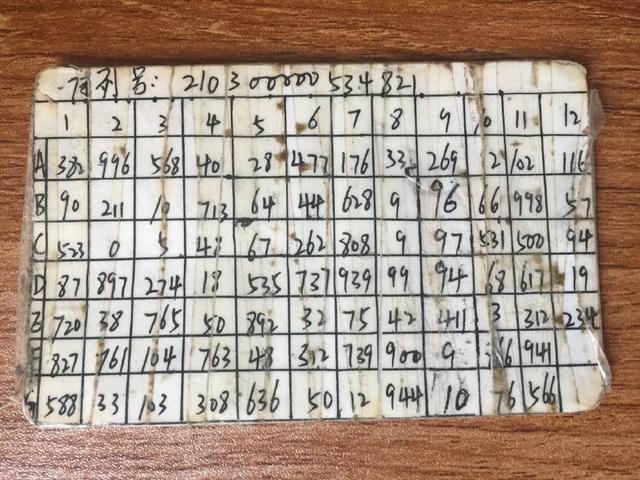 序列号: 210300000534821
1 2 3 4 5 6 7 8 9 10 11 12
A 382 996 568 40 28 477 176 33 269 2 102 116
B 90 211 10 713 64 44 628 9 96 66 998 57
C 533 0 5 48 67 262 808 9 97 531 500 94
D 87 897 274 18 535 737 939 99 94 68 617 19
E 720 38 765 50 892 32 75 42 411 3 312 234
F 827 761 104 763 48 312 739 900 9 941
G 588 33 103 308 636 50 12 944 10 76 566